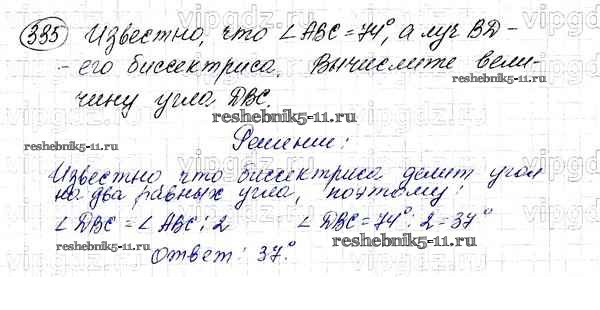 335 Известно, что ∠ABC = 74°, а луч BD -
- его биссектриса. Вычислите вели-
чину угла DBC.
Решение:
Известно что биссектриса делит угол
на два равных угла, поэтому:
∠DBC = ∠ABC : 2    ∠DBC = 74° : 2 = 37°
Ответ: 37°.
reshebnik5-11.ru
reshebnik5-11.ru
reshebnik5-11.ru
reshebnik5-11.ru
reshebnik5-11.ru
reshebnik5-11.ru
reshebnik5-11.ru
vipgdz.ru